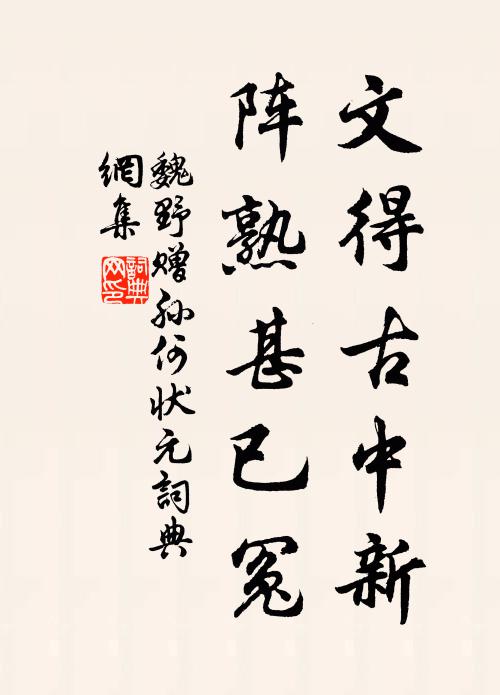 文得古中新
阵熟甚已冤
魏野赠孙何状元詞典
網集
詞典
网印